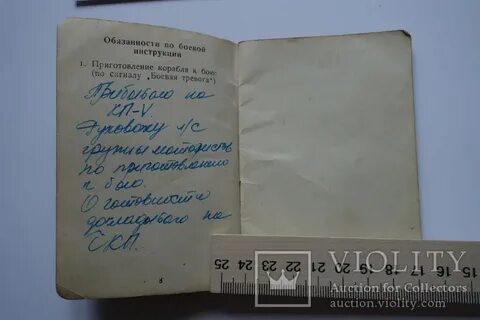 Обязанности по боевой
инструкции
1. Приготовление корабля к бою:
(по сигналу „Боевая тревога“)
Прибываю на
КП-V
Руковожу л/с
группы мотористов
по приготовлению
к бою.
О готовности
докладываю на
СКП.
8
25 24 23 22 21 20 19 18 17 16 15
VIOLITY
Auction for Collectors
auction.violity.com